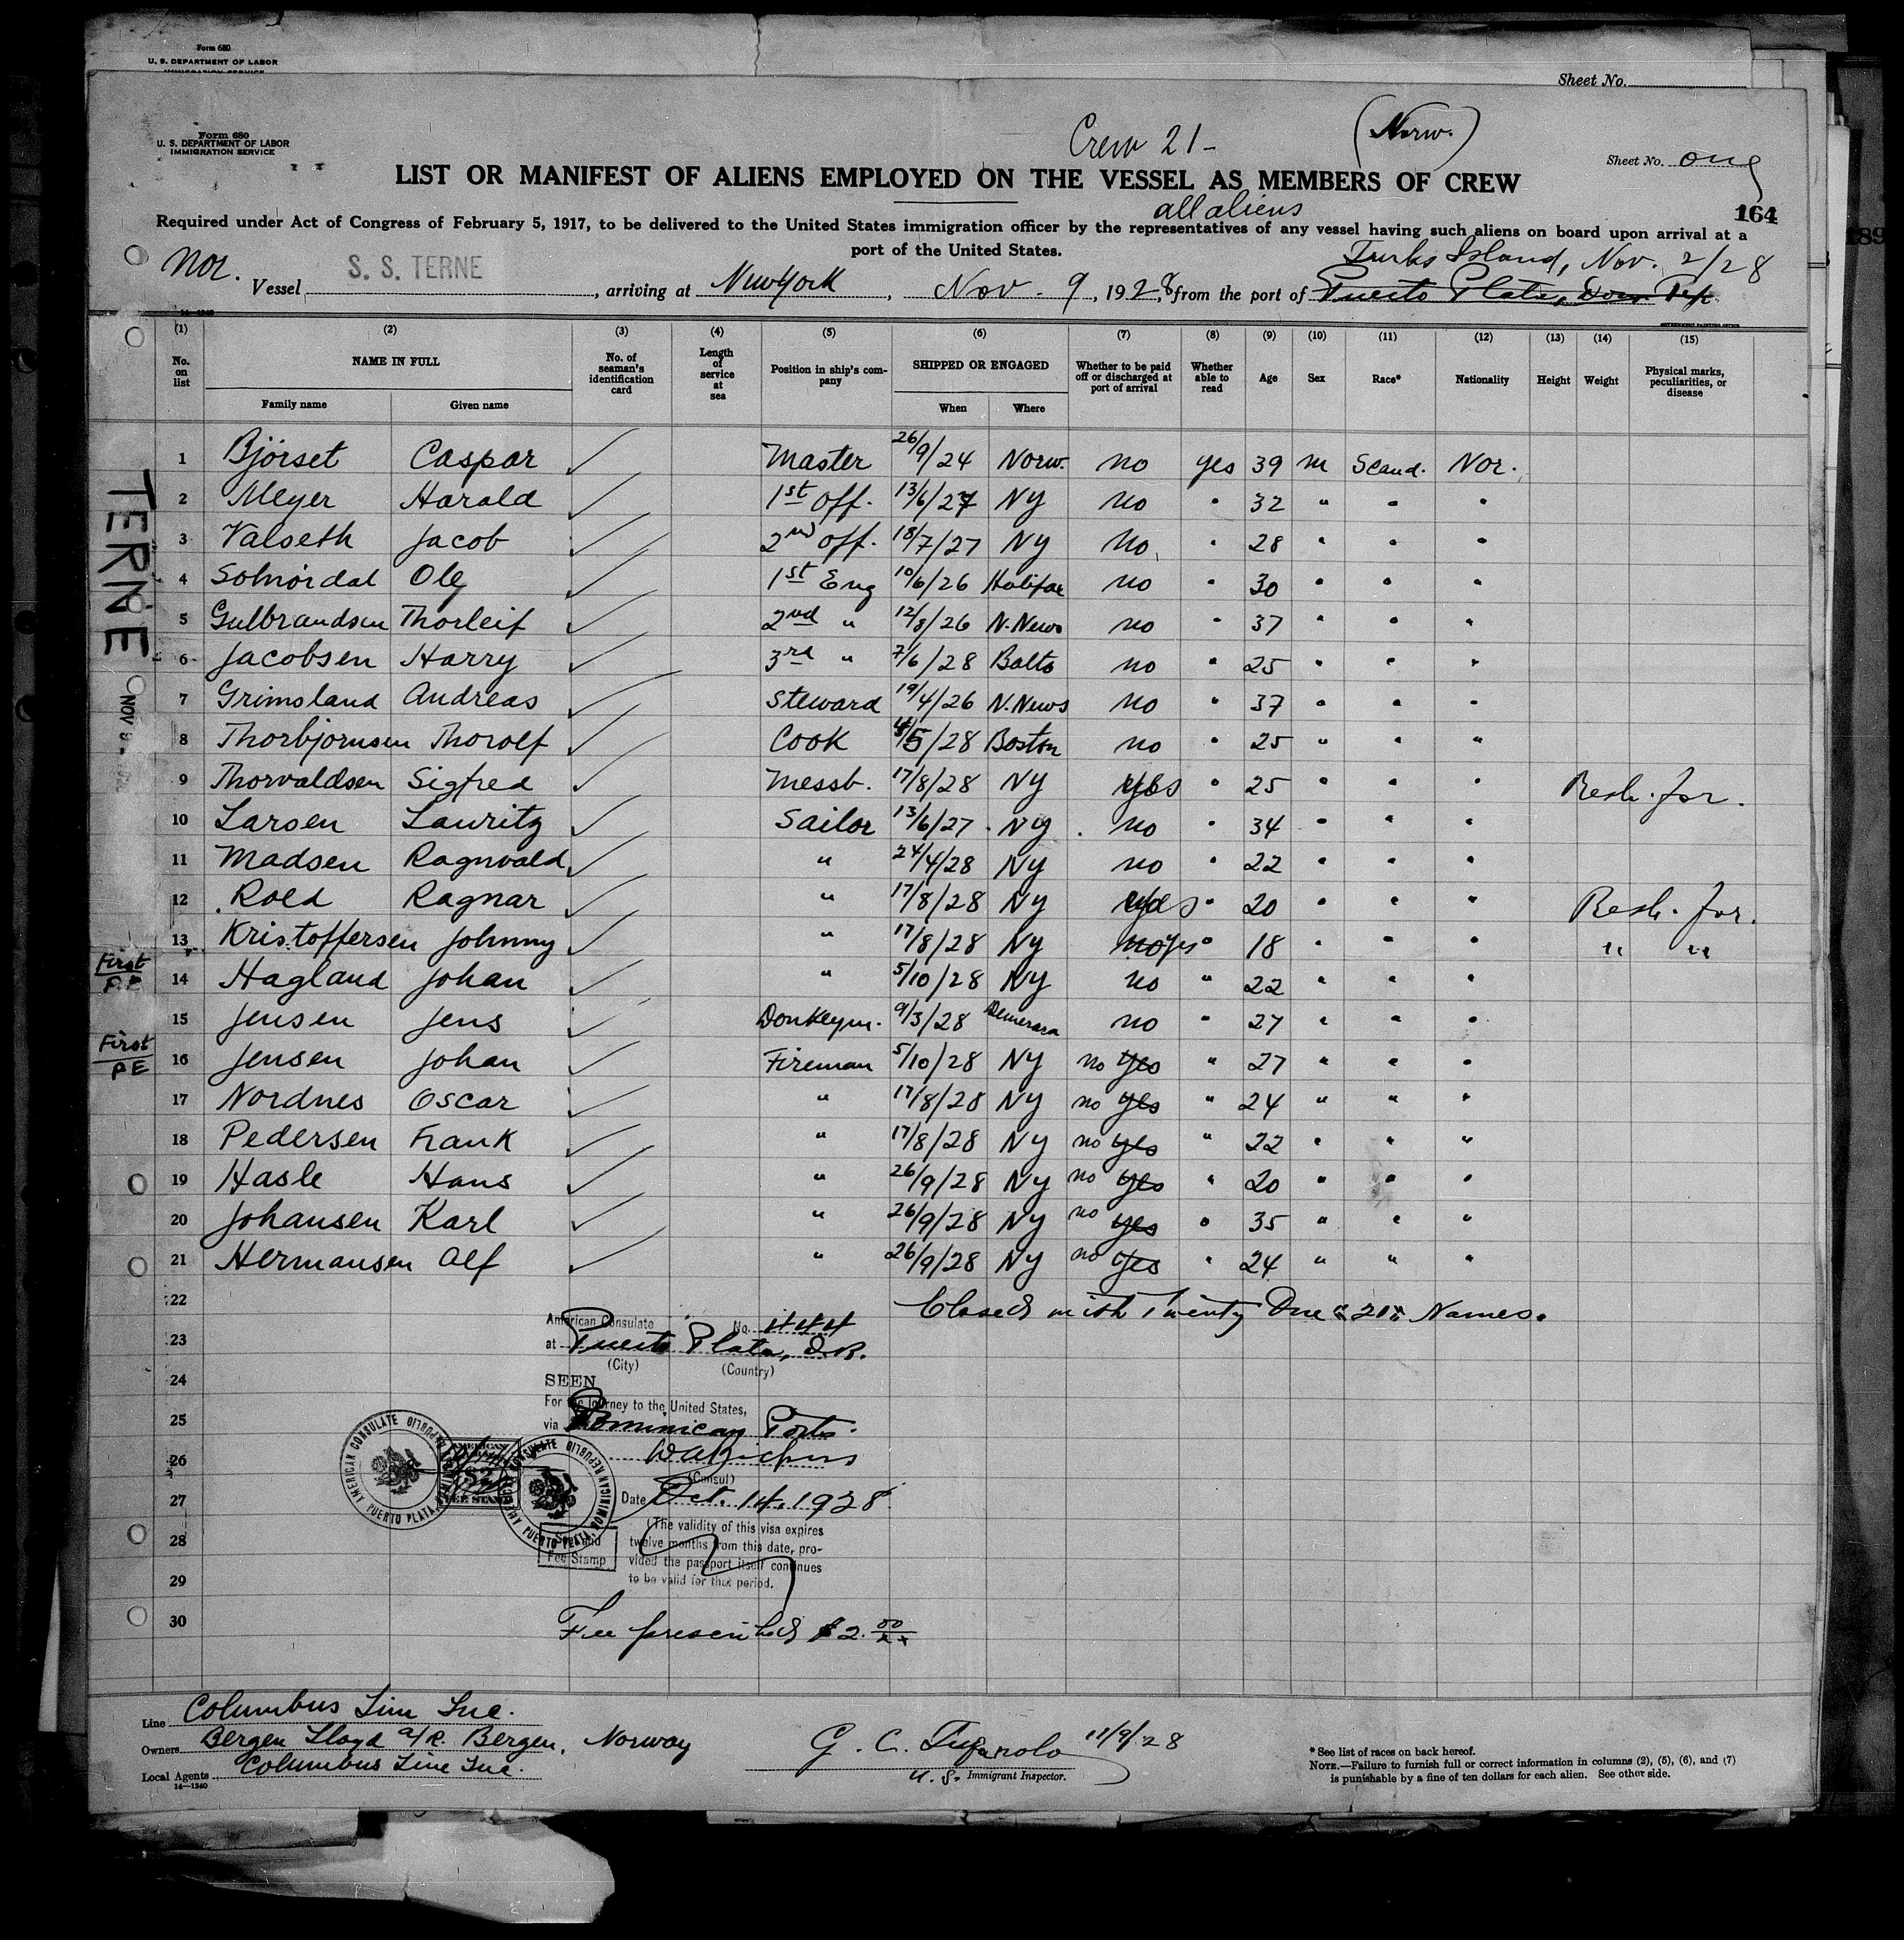 Form 680
U. S. DEPARTMENT OF LABOR
IMMIGRATION SERVICE
Sheet No.
Form 680
U. S. DEPARTMENT OF LABOR
IMMIGRATION SERVICE
Crew 21 -
(Norw.)
Sheet No. one
LIST OR MANIFEST OF ALIENS EMPLOYED ON THE VESSEL AS MEMBERS OF CREW
all aliens
164
189
Required under Act of Congress of February 5, 1917, to be delivered to the United States immigration officer by the representatives of any vessel having such aliens on board upon arrival at a
port of the United States.
Turks Island, Nov. 2/28
Nor. Vessel S. S. TERNE, arriving at New York, Nov. 9, 1928, from the port of Puerto Plata, Dom. Rep.
14-1240
GOVERNMENT PRINTING OFFICE
(1) (2) (3) (4) (5) (6) (7) (8) (9) (10) (11) (12) (13) (14) (15)
No. on list NAME IN FULL No. of seaman's identification card Length of service at sea Position in ship's company SHIPPED OR ENGAGED Whether to be paid off or discharged at port of arrival Whether able to read Age Sex Race* Nationality Height Weight Physical marks, peculiarities, or disease
Family name Given name When Where
1 Bjórset Caspar Master 26/9/24 Norw. no yes 39 m Scand. Nor.
2 Meyer Harald 1st Off. 13/6/27 NY no " 32 " " "
3 Valseth Jacob 2nd Off. 18/7/27 NY no " 28 " " "
4 Solnórdal Ole 1st Eng 10/6/26 Halifax no " 30 " " "
5 Gulbrandsen Thorleif 2nd " 12/8/26 N. News no " 37 " " "
6 Jacobsen Harry 3rd " 7/6/28 Balto no " 25 " " "
7 Grimsland Andreas Steward 19/4/26 N. News no " 37 " " "
8 Thorbjornsen Thorolf Cook 5/28 Boston no " 25 " " "
9 Thorvaldsen Sigfred Messb. 17/8/28 NY yes " 25 " " " Resh. for.
10 Larsen Lauritz Sailor 13/6/27 NY no " 34 " " "
11 Madsen Ragnvald " 24/4/28 NY no " 22 " " "
12 Roed Ragnar " 17/8/28 NY yes " 20 " " " Resh. for.
13 Kristoffersen Johnny " 17/8/28 NY no yes " 18 " " " " "
First P.E. 14 Hagland Johan " 5/10/28 NY no " 22 " " "
15 Jensen Jens Donkeym. 9/3/28 Demerara no " 27 " " "
First PE 16 Jensen Johan Fireman 5/10/28 NY no yes " 27 " " "
17 Nordnes Oscar " 17/8/28 NY no yes " 24 " " "
18 Pedersen Frank " 17/8/28 NY no yes " 22 " " "
19 Hasle Hans " 26/9/28 NY no yes " 20 " " "
20 Johansen Karl " 26/9/28 NY no yes " 35 " " "
21 Hermansen Alf " 26/9/28 NY no yes " 24 " " "
TERNE
NOV 9
22 Closed with Twenty One "21" Names.
American Consulate No. 444
23 at Puerto Plata, D.R.
(City) (Country)
24 SEEN
For the journey to the United States,
25 via Dominican Ports.
26
(Consul)
27 Date Oct. 14, 1928
(The validity of this visa expires
28 twelve months from this date, pro-
vided the passport itself continues
29 to be valid for that period.
AMERICAN CONSULATE PUERTO PLATA DOMINICAN REPUBLIC
AMERICAN $2 FEE STAMP
AMERICAN CONSULATE PUERTO PLATA DOMINICAN REPUBLIC
Fee Stamp
30 Fee prescribed $2.00
Line Columbus Line Inc.
Owners Bergen Lloyd A/R. Bergen, Norway
Local Agents Columbus Line Inc.
14-1240
G. C. 11/9/28
U. S. Immigrant Inspector.
* See list of races on back hereof.
NOTE.—Failure to furnish full or correct information in columns (2), (5), (6), and (7)
is punishable by a fine of ten dollars for each alien. See other side.